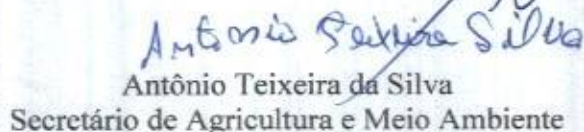 Antonio Teixeira Silva
Antônio Teixeira da Silva
Secretário de Agricultura e Meio Ambiente